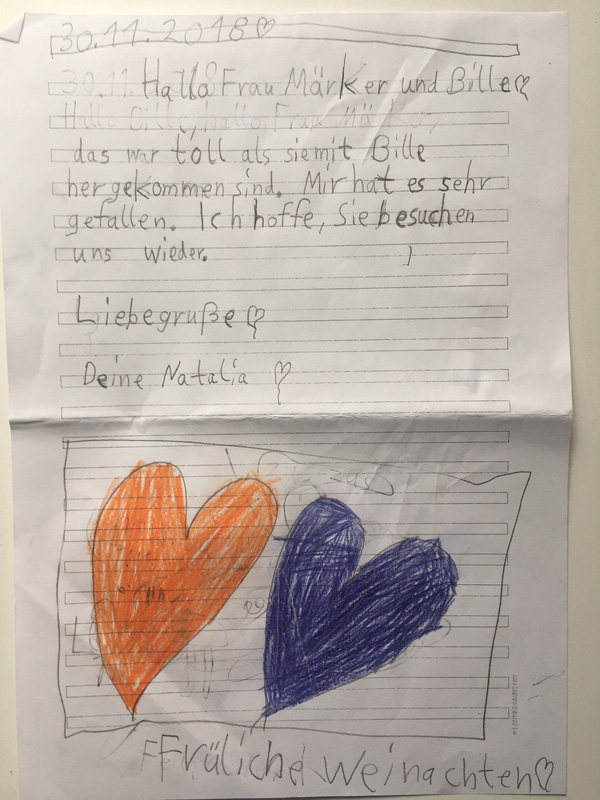 30.11.2018♡
Hallo Frau Märker und Bille♡
das war toll als siemit Bille
hergekommen sind. Mir hat es sehr
gefallen. Ich hoffe, Sie besuchen
uns wieder.
Liebegruße♡
Deine Natalia ♡
FFrüliche Weinachten♡